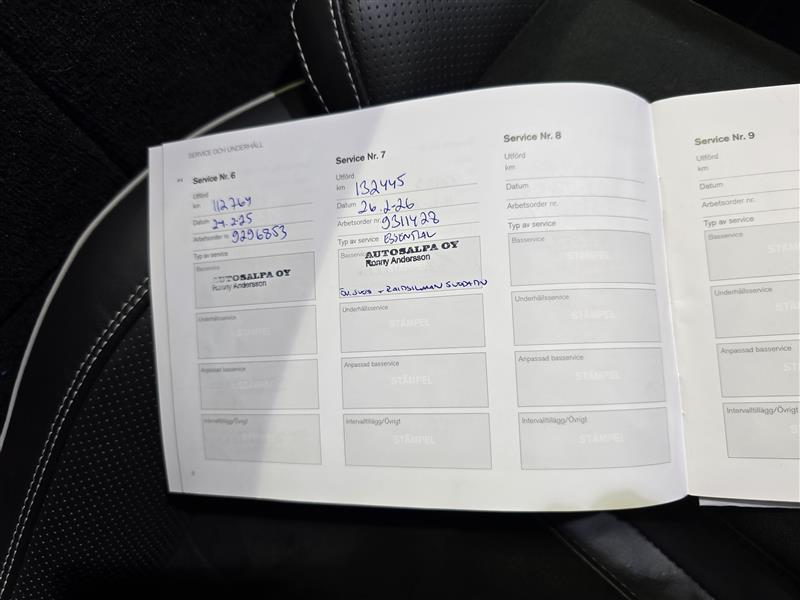 SERVICE OCH UNDERHÅLL
Service Nr. 6
Utförd
km 112769
Datum 24.2-25
Arbetsorder nr. 9296853
Typ av service
Basservice
AUTOSALPA OY
Ronny Andersson
Underhållsservice
Anpassad basservice
Intervalltillägg/Övrigt
Service Nr. 7
Utförd
km 132445
Datum 26.2-26
Arbetsorder nr. 9311428
Typ av service ESSENTIAL
Basservice
AUTOSALPA OY
Ronny Andersson
Underhållsservice
STÄMPEL
Anpassad basservice
STÄMPEL
Intervalltillägg/Övrigt
STÄMPEL
Service Nr. 8
Utförd
km
Datum
Arbetsorder nr.
Typ av service
Basservice
STÄMPEL
Underhållsservice
STÄMPEL
Anpassad basservice
STÄMPEL
Intervalltillägg/Övrigt
STÄMPEL
Service Nr. 9
Utförd
km
Datum
Arbetsorder nr.
Typ av service
Basservice
Underhållsservice
Anpassad basservice
Intervalltillägg/Övrigt